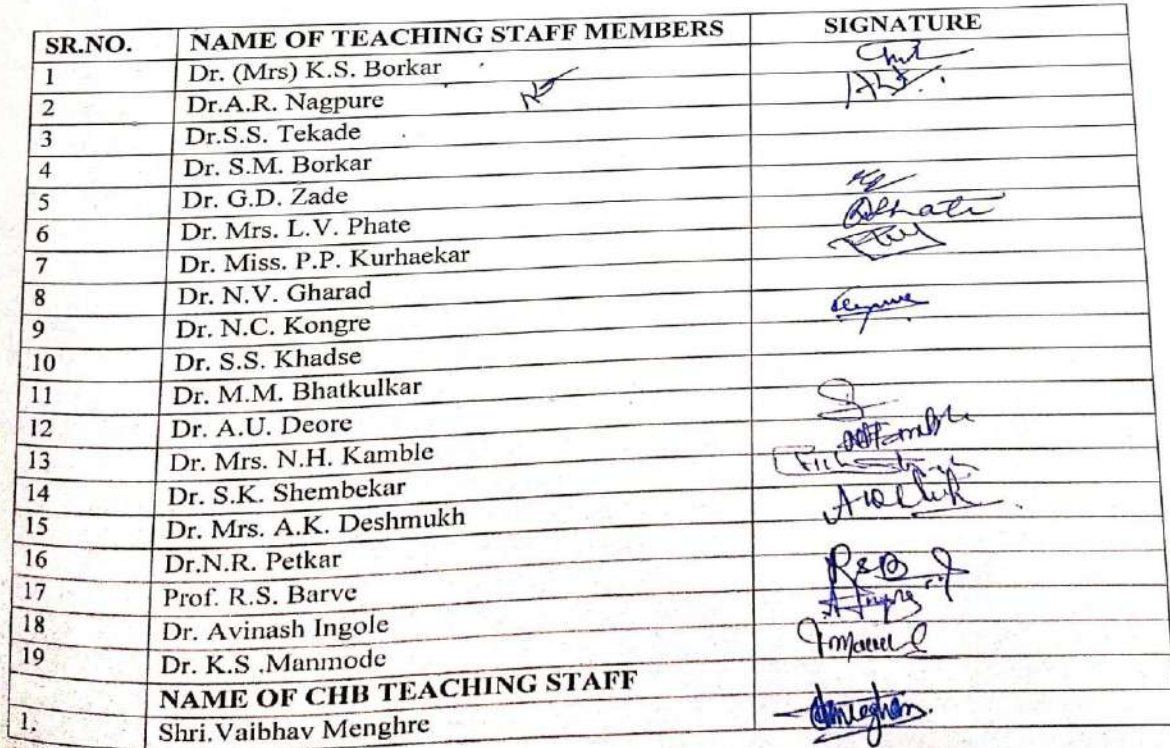 SR.NO. NAME OF TEACHING STAFF MEMBERS SIGNATURE
1 Dr. (Mrs) K.S. Borkar
2 Dr.A.R. Nagpure
3 Dr.S.S. Tekade
4 Dr. S.M. Borkar
5 Dr. G.D. Zade
6 Dr. Mrs. L.V. Phate
7 Dr. Miss. P.P. Kurhaekar
8 Dr. N.V. Gharad
9 Dr. N.C. Kongre
10 Dr. S.S. Khadse
11 Dr. M.M. Bhatkulkar
12 Dr. A.U. Deore
13 Dr. Mrs. N.H. Kamble
14 Dr. S.K. Shembekar
15 Dr. Mrs. A.K. Deshmukh
16 Dr.N.R. Petkar
17 Prof. R.S. Barve
18 Dr. Avinash Ingole
19 Dr. K.S .Manmode
NAME OF CHB TEACHING STAFF
1. Shri.Vaibhav Menghre